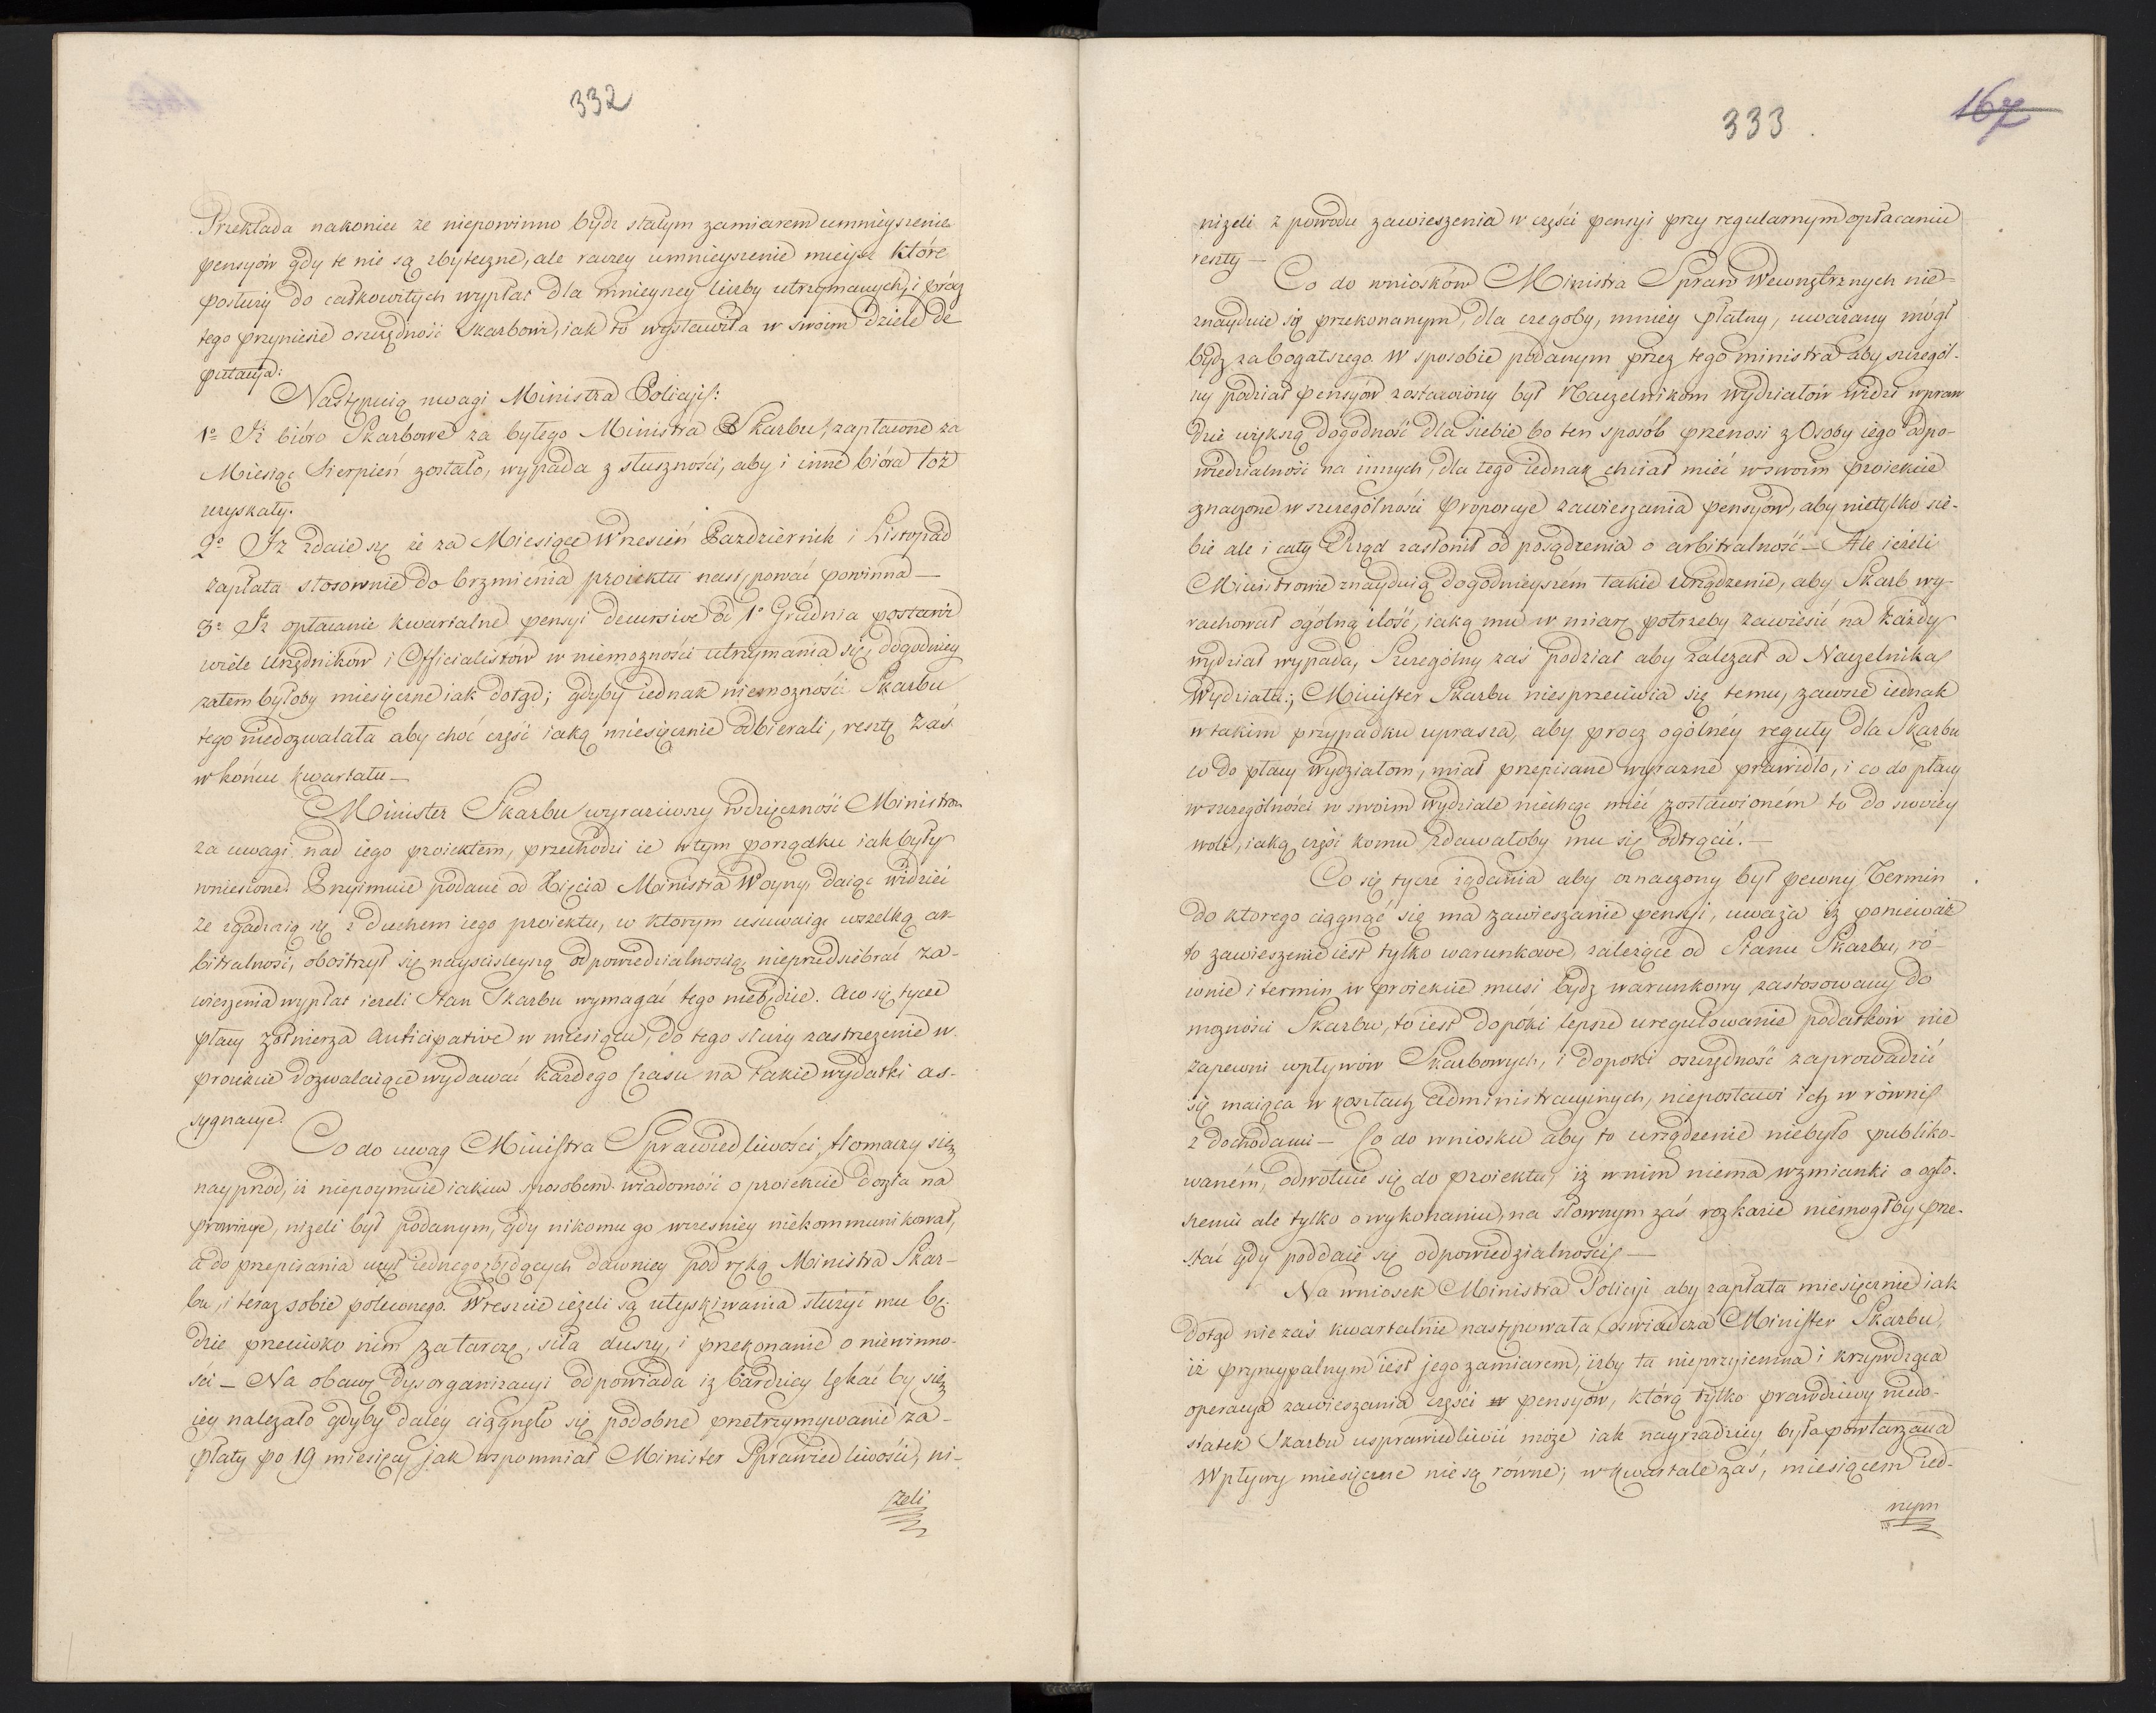 332
Przekłada nakoniec że niepowinno bydź stałym zamiarem umnieyszenie
pensyów gdy te nie są zbyteczne, ale raczey umnieyszenie mieysc które
posłuży do całkowitych wypłat dla mnieyszey liczby utrzymanych, i prócz
tego przyniesie oszczędność Skarbowi, iak to wystawiła w swoim dziele De
putacya:
Następuią uwagi Ministra Policyi:
1º Iż bióro Skarbowe za byłego Ministra Skarbu, zapłacone za
Miesiąc Sierpień zostało, wypada z słuszności, aby i inne bióra toż
uzyskały.
2º Iż zdaie się że za Miesiące Wrzesień Pazdziernik i Listopad
zapłata stosownie do brzmienia proiektu następować powinna —
3º Iż opłacanie kwartalne pensyi decursive od 1º Grudnia postawi
wiele Urzędników i Officialistów w niemozności utrzymania się, dogodniey
zatem byłoby miesięczne iak dotąd; gdyby iednak niemozność Skarbu
tego niedozwalała aby choć część iaką miesięcznie odbierali, resztę zaś
w końcu kwartału —
Minister Skarbu wyraziwszy wdzięczność Ministrom
za uwagi nad iego proiektem, przechodzi ie w tym porządku iak były
wniesione. Przyimuie podane od Xięcia Ministra Woyny, daiąc widzieć
że zgadzaią się z duchem iego proiektu, w ktorym usuwaiąc wszelką ar-
bitralność, obostrzył się nayscisleyszą odpowiedzialnoscią, nieprzedsiebrać za-
wieszenia wypłat ieżeli Stan Skarbu wymagać tego niebędzie. A co się tycze
płacy żołnierza anticipative w miesiącu, do tego służy zastrzeżenie w
proiekcie dozwalaiące wydawać każdego czasu na takie wydatki as-
sygnacye.
Co do uwag Ministra Sprawiedliwości, tłomaczy się
nayprzód, iż niepoymuie iakim sposobem wiadomość o proiekcie doszła na
prowincye, niżeli był podanym, gdy nikomu go wcześniey niekommunikował,
a do przepisania użył iednego z będących dawniey pod ręką Ministra Skar-
bu, i teraz sobie poleconego. Wreszcie ieżeli są utyskiwania służyć mu bę-
dzie przeciwko nim za tarczę, siła duszy, i przekonanie o niewinno-
ści — Na obawę dysorganizacyi odpowiada iż bardziey lękać by się
iey należało gdyby daley ciągnęło się podobne przetrzymywanie za-
płaty po 19 miesięcy, jak wspomniał Minister Sprawiedliwości, ni-
żeli
167
333
niżeli z powodu zawieszenia w części pensyi przy regularnym opłacaniu
reszty —
Co do wniosków Ministra Spraw Wewnętrznych nie-
znayduie się przekonanym, dla czegoby, mniey płatny, uważany mógł
bydz za bogatszego. W sposobie podanym przez tego ministra aby szczegól-
ny podział pensyów zostawiony był Naczelnikom Wydziałów widzi wpraw
dzie większą dogodność dla siebie bo ten sposób przenosi z Osoby iego odpo-
wiedzialność na innych, dla tego iednak chciał mieć w swoim proiekcie
znaczone w szczególności proporcye zawieszania pensyów, aby nietylko sie-
bie ale i cały Rząd zasłonił od posądzenia o arbitralność — Ale ieżeli
Ministrowie znayduią dogodnieyszém takie urządzenie, aby Skarb wy-
rachował ogólną ilość, iaką mu w miarę potrzeby zawiesić na każdy
wydział wypada, Szczególny zaś podział aby zależał od Naczelnika
Wydziału; Minister Skarbu niesprzeciwia się temu, zawsze iednak
w takim przypadku uprasza, aby procz ogólnéy reguły dla Skarbu
co do płacy wydziałom, miał przepisane wyrazne prawidło, i co do płacy
w szczególności w swoim Wydziale niechcąc mieć zostawioném to do swoiey
woli, iaką część komu zdawałoby mu się odtrącić. —
Co się tycze żądania aby oznaczony był pewny Termin
do ktorego ciągnąć się ma zawieszanie pensyi, uważa iż ponieważ
to zawieszenie iest tylko warunkowe, zależące od Stanu Skarbu, ró-
wnie i termin w proiekcie musi bydz warunkowy zastosowany do
mozności Skarbu, to iest dopóki lepsze uregulowanie podatków nie
zapewni wpływów Skarbowych, i dopoki oszczędność zaprowadzić
się maiąca w kosztach administracyinych, niepostawi ich w równi
z dochodami — Co do wniosku aby to urządzenie niebyło publiko-
waném, odwołuie się do proiektu, iż w nim niema wzmianki o ogło-
szeniu ale tylko o wykonaniu, na słownym zaś rozkazie niemogłby prze-
stać gdy poddaie się odpowiedzialności —
Na wniosek Ministra Policyi aby zapłata miesięcznie iak
dotąd nie zaś kwartalnie następowała, oswiadcza Minister Skarbu,
iż pryncypalnym iest jego zamiarem, iżby ta nieprzyiemna i krzywdząca
operacya zawieszania części pensyów, którą tylko prawdziwy niedo-
statek Skarbu usprawiedliwić może iak nayrzadziey była powtarzana
Wpływy miesięczne nie są równe; w kwartale zaś, miesiącem ied-
nym